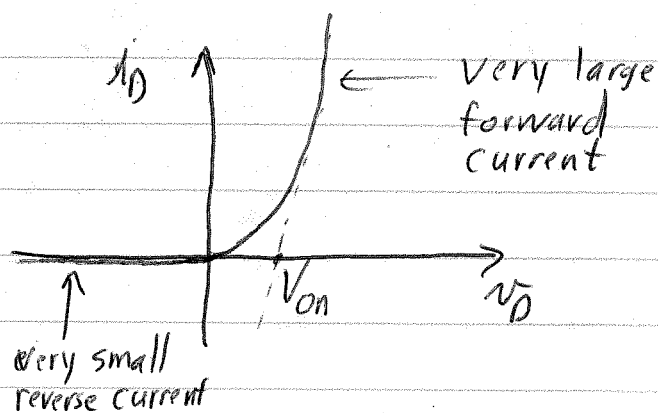 i_D
Very large
forward
current
V_on
v_D
very small
reverse current